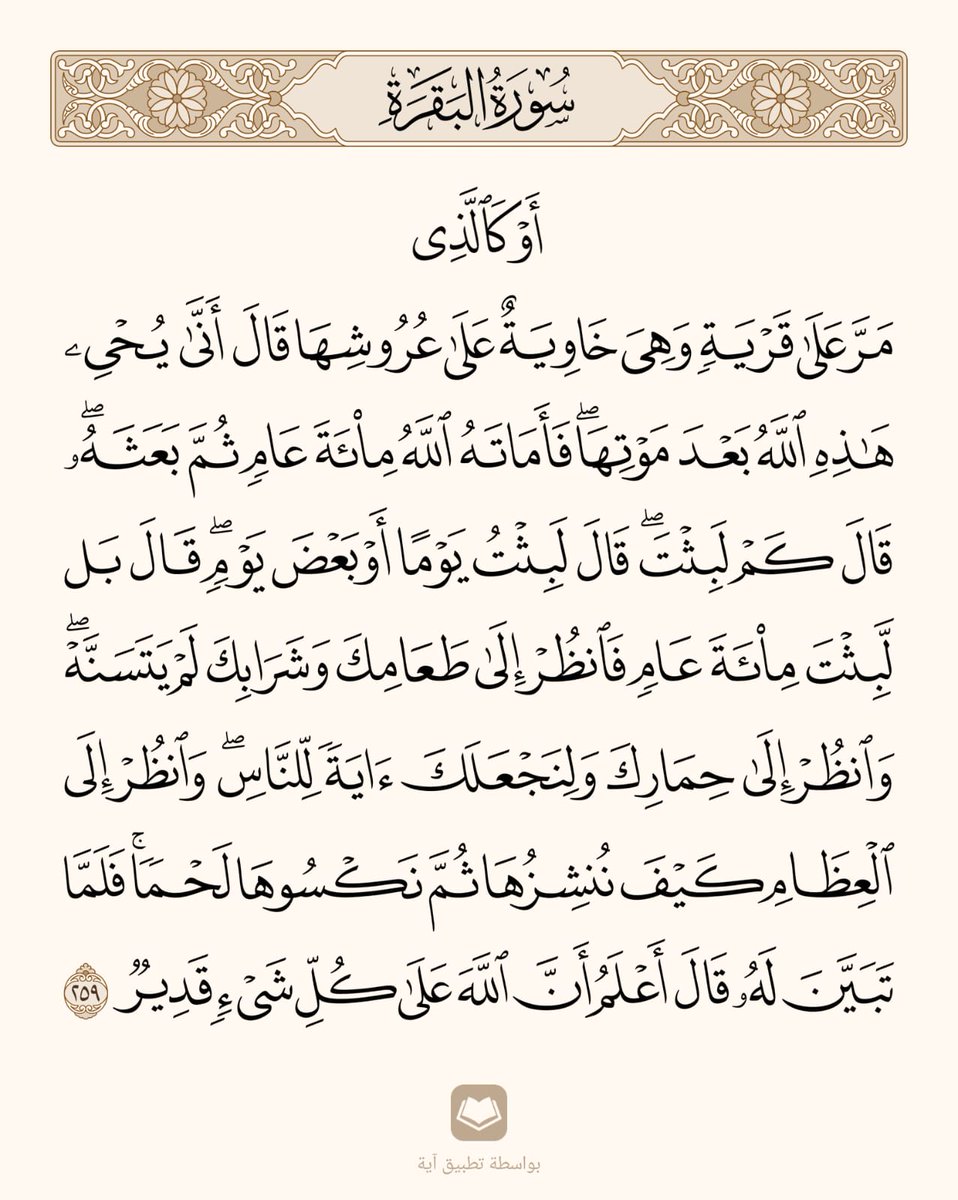 سُورَةُ البَقَرَةِ
أَوْ كَٱلَّذِى
مَرَّ عَلَىٰ قَرْيَةٍۢ وَهِىَ خَاوِيَةٌ عَلَىٰ عُرُوشِهَا قَالَ أَنَّىٰ يُحْىِۦ
هَـٰذِهِ ٱللَّهُ بَعْدَ مَوْتِهَا ۖ فَأَمَاتَهُ ٱللَّهُ مِا۟ئَةَ عَامٍۢ ثُمَّ بَعَثَهُۥ ۖ
قَالَ كَمْ لَبِثْتَ ۖ قَالَ لَبِثْتُ يَوْمًا أَوْ بَعْضَ يَوْمٍۢ ۖ قَالَ بَل
لَّبِثْتَ مِا۟ئَةَ عَامٍۢ فَٱنظُرْ إِلَىٰ طَعَامِكَ وَشَرَابِكَ لَمْ يَتَسَنَّهْ ۖ
وَٱنظُرْ إِلَىٰ حِمَارِكَ وَلِنَجْعَلَكَ ءَايَةًۭ لِّلنَّاسِ ۖ وَٱنظُرْ إِلَى
ٱلْعِظَامِ كَيْفَ نُنشِزُهَا ثُمَّ نَكْسُوهَا لَحْمًۭا ۚ فَلَمَّا
تَبَيَّنَ لَهُۥ قَالَ أَعْلَمُ أَنَّ ٱللَّهَ عَلَىٰ كُلِّ شَىْءٍۢ قَدِيرٌۭ ٢٥٩
بواسطة تطبيق آية